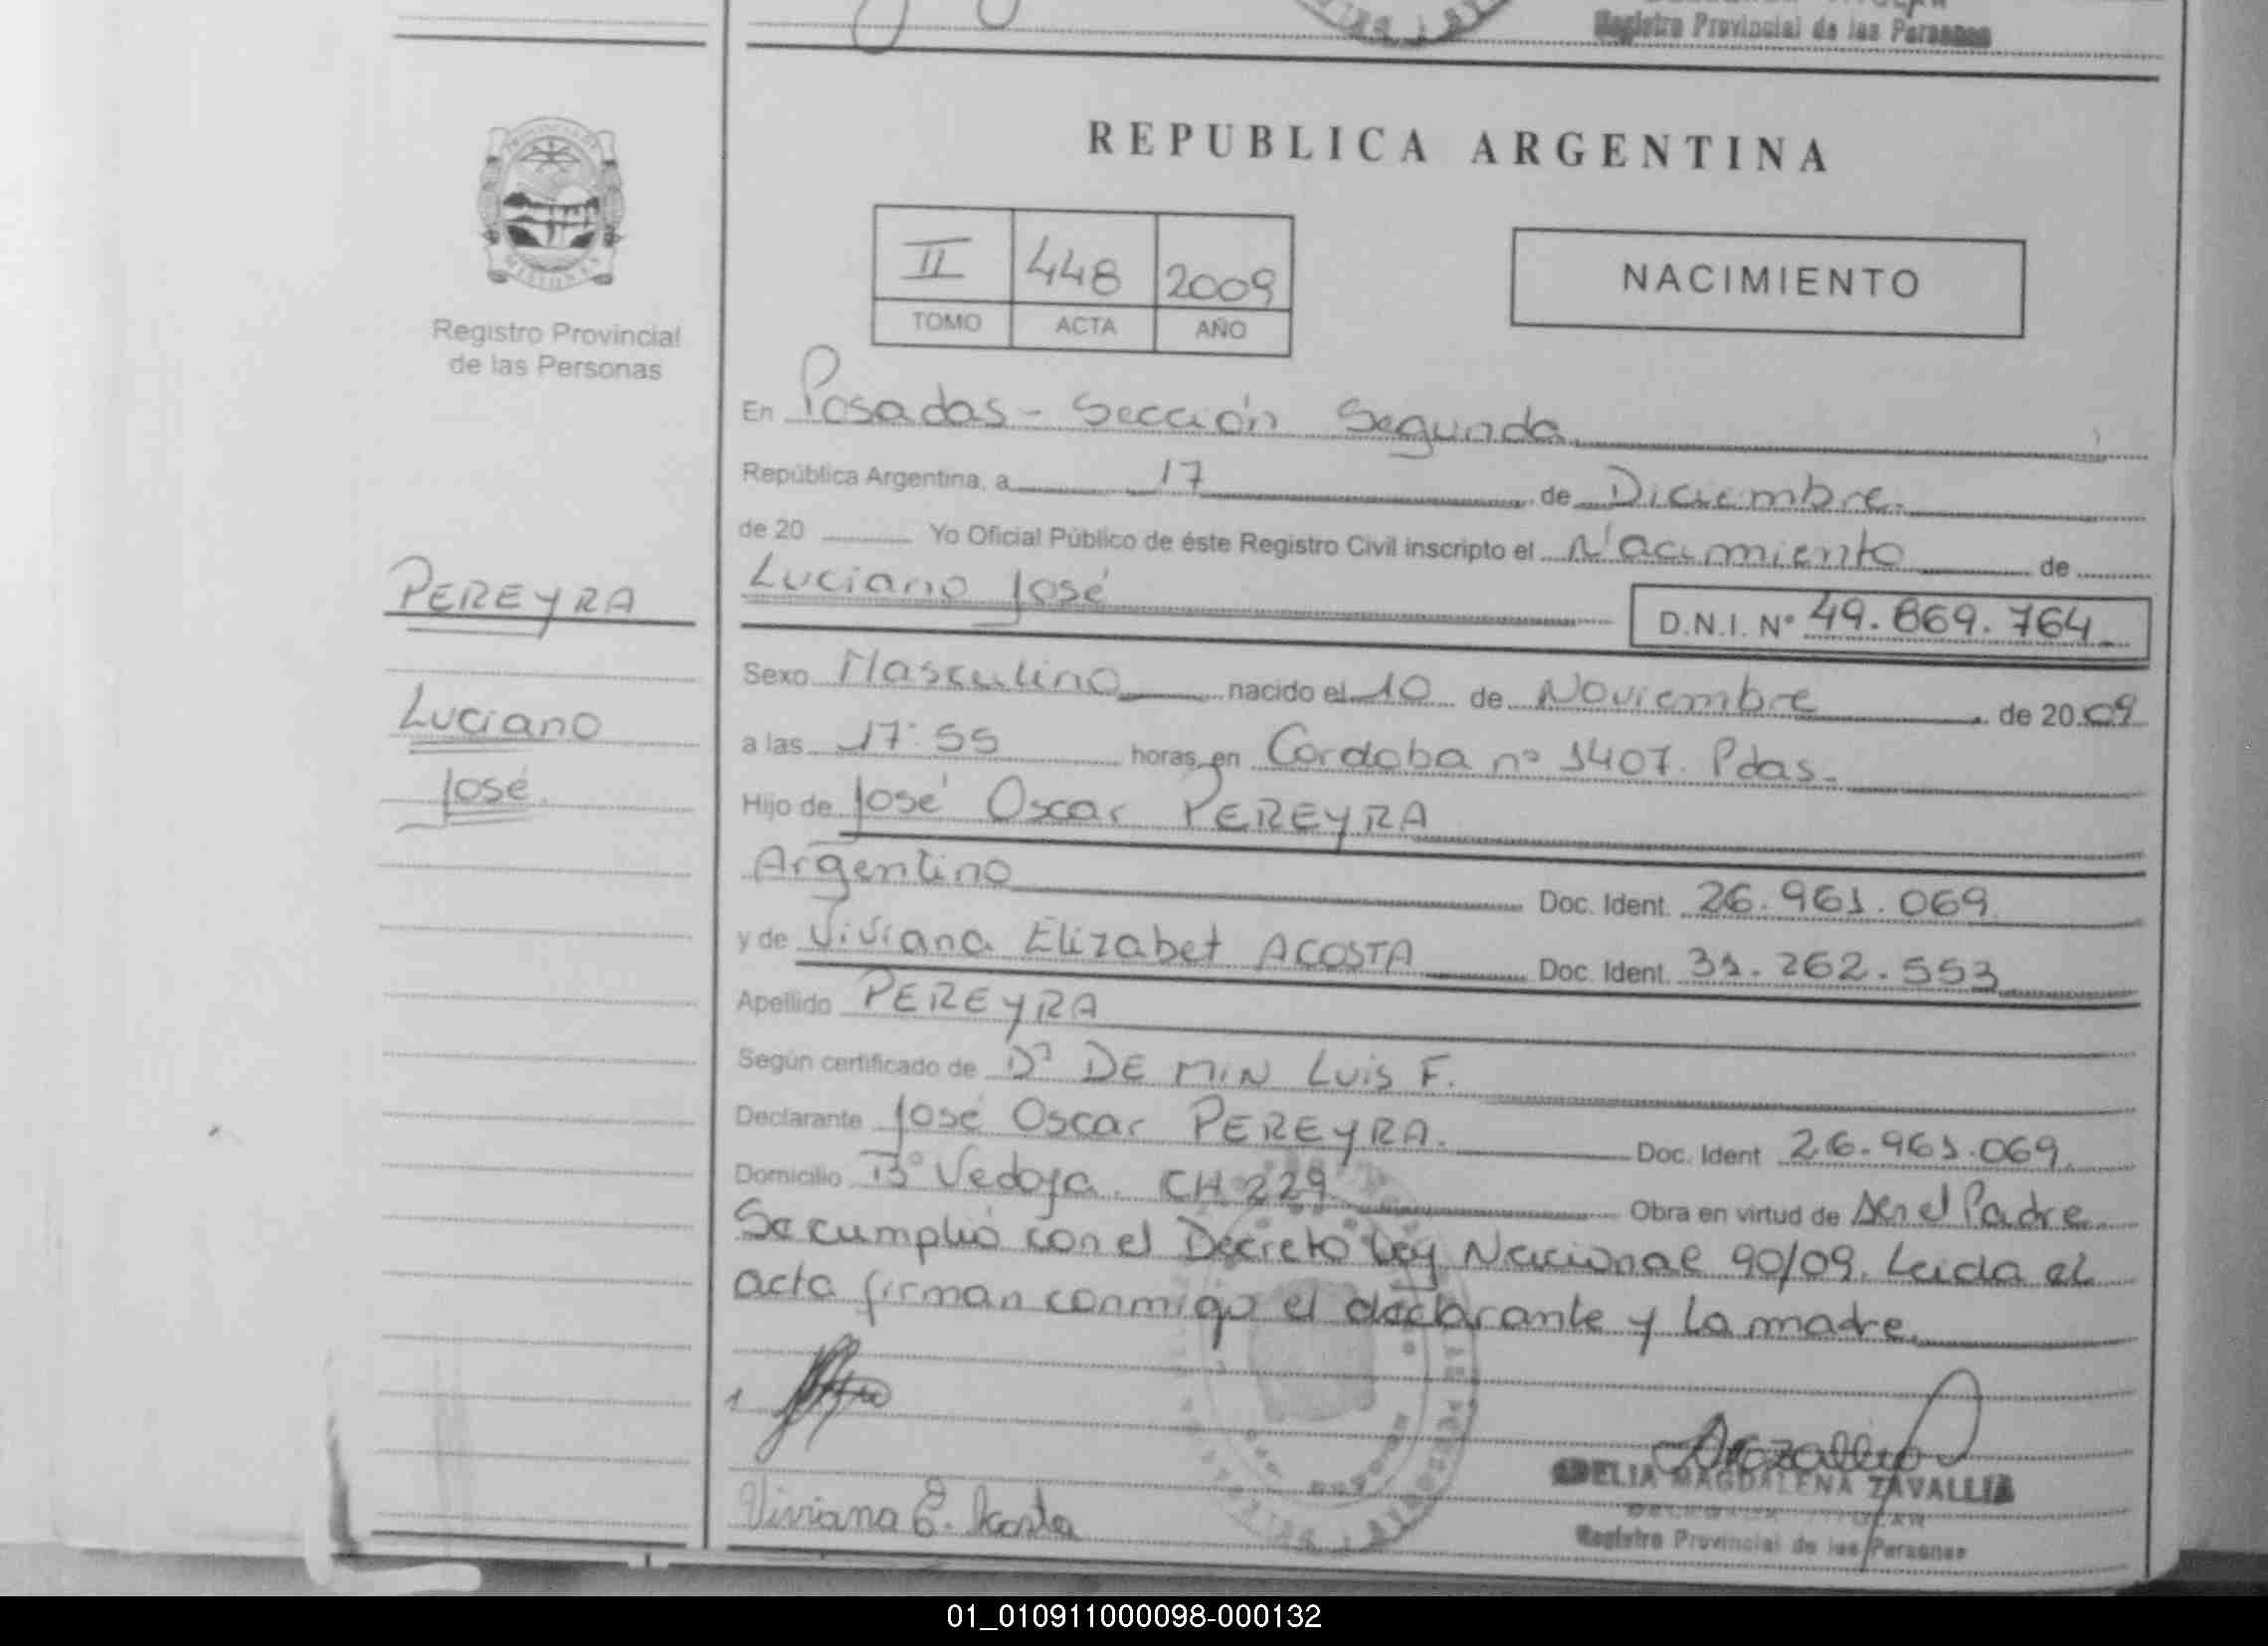 Registro Provincial de las Personas
PROVINCIA DE
MISIONES
Registro Provincial
de las Personas
PEREYRA
Luciano
José
REPUBLICA ARGENTINA
II 448 2009
TOMO ACTA AÑO
NACIMIENTO
En Posadas - Sección Segunda
República Argentina, a 17 de Diciembre.
de 20 Yo Oficial Público de éste Registro Civil inscripto el Nacimiento de
Luciano José
D.N.I. Nº 49.869.764
Sexo Masculino nacido el 10 de Noviembre de 2009
a las 17:55 horas, en Cordoba nº 1407. Pdas.
Hijo de José Oscar PEREYRA
Argentino Doc. Ident. 26.961.069
y de Viviana Elizabet ACOSTA Doc. Ident. 31.262.553
Apellido PEREYRA
Según certificado de Dº DE MIN LUIS F.
Declarante José Oscar PEREYRA. Doc. Ident 26.961.069.
Domicilio Bº Vedoya. CH 229 Obra en virtud de Ser el Padre
Se cumplió con el Decreto Ley Nacional 90/09. Leida el
acta firman conmigo el declarante y la madre.
1
Viviana E. Acosta
ADELIA MAGDALENA ZAVALLIA
Registro Provincial de las Personas
01_010911000098-000132